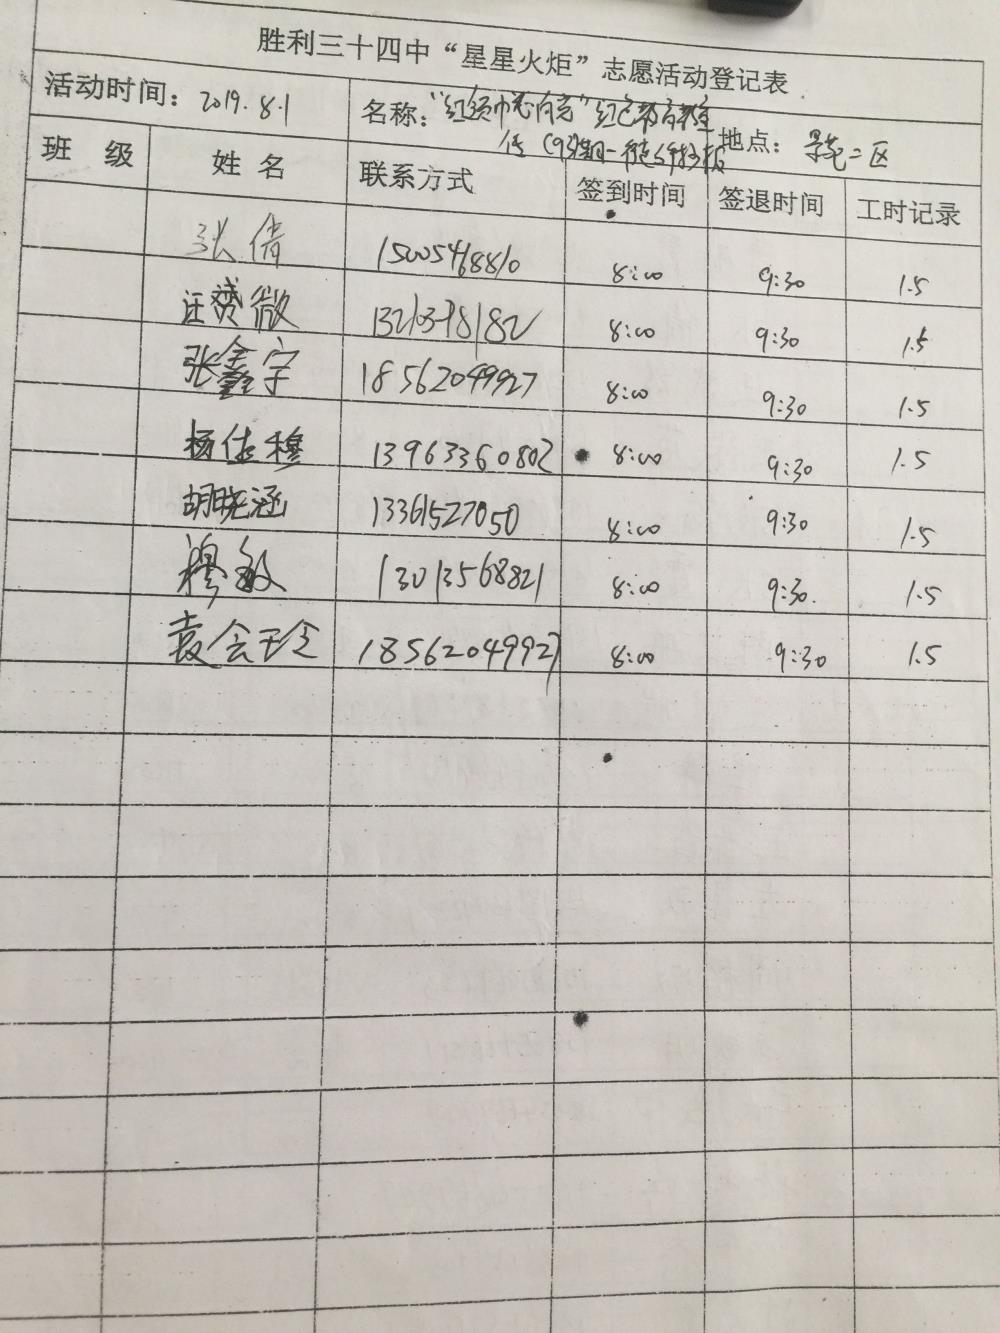 胜利三十四中“星星火炬”志愿活动登记表
活动时间: 2019.8.1 名称: “红领巾 红色教育 地点: 二区
班 级 姓 名 联系方式 签到时间 签退时间 工时记录
张倩 15005468810 8:00 9:30 1.5
汪赟微 13210378182 8:00 9:30 1.5
张鑫宇 18562049927 8:00 9:30 1.5
杨佳穆 13963360802 8:00 9:30 1.5
胡晓涵 13361527050 8:00 9:30 1.5
穆敏 13013568821 8:00 9:30 1.5
袁会玲 18562049927 8:00 9:30 1.5